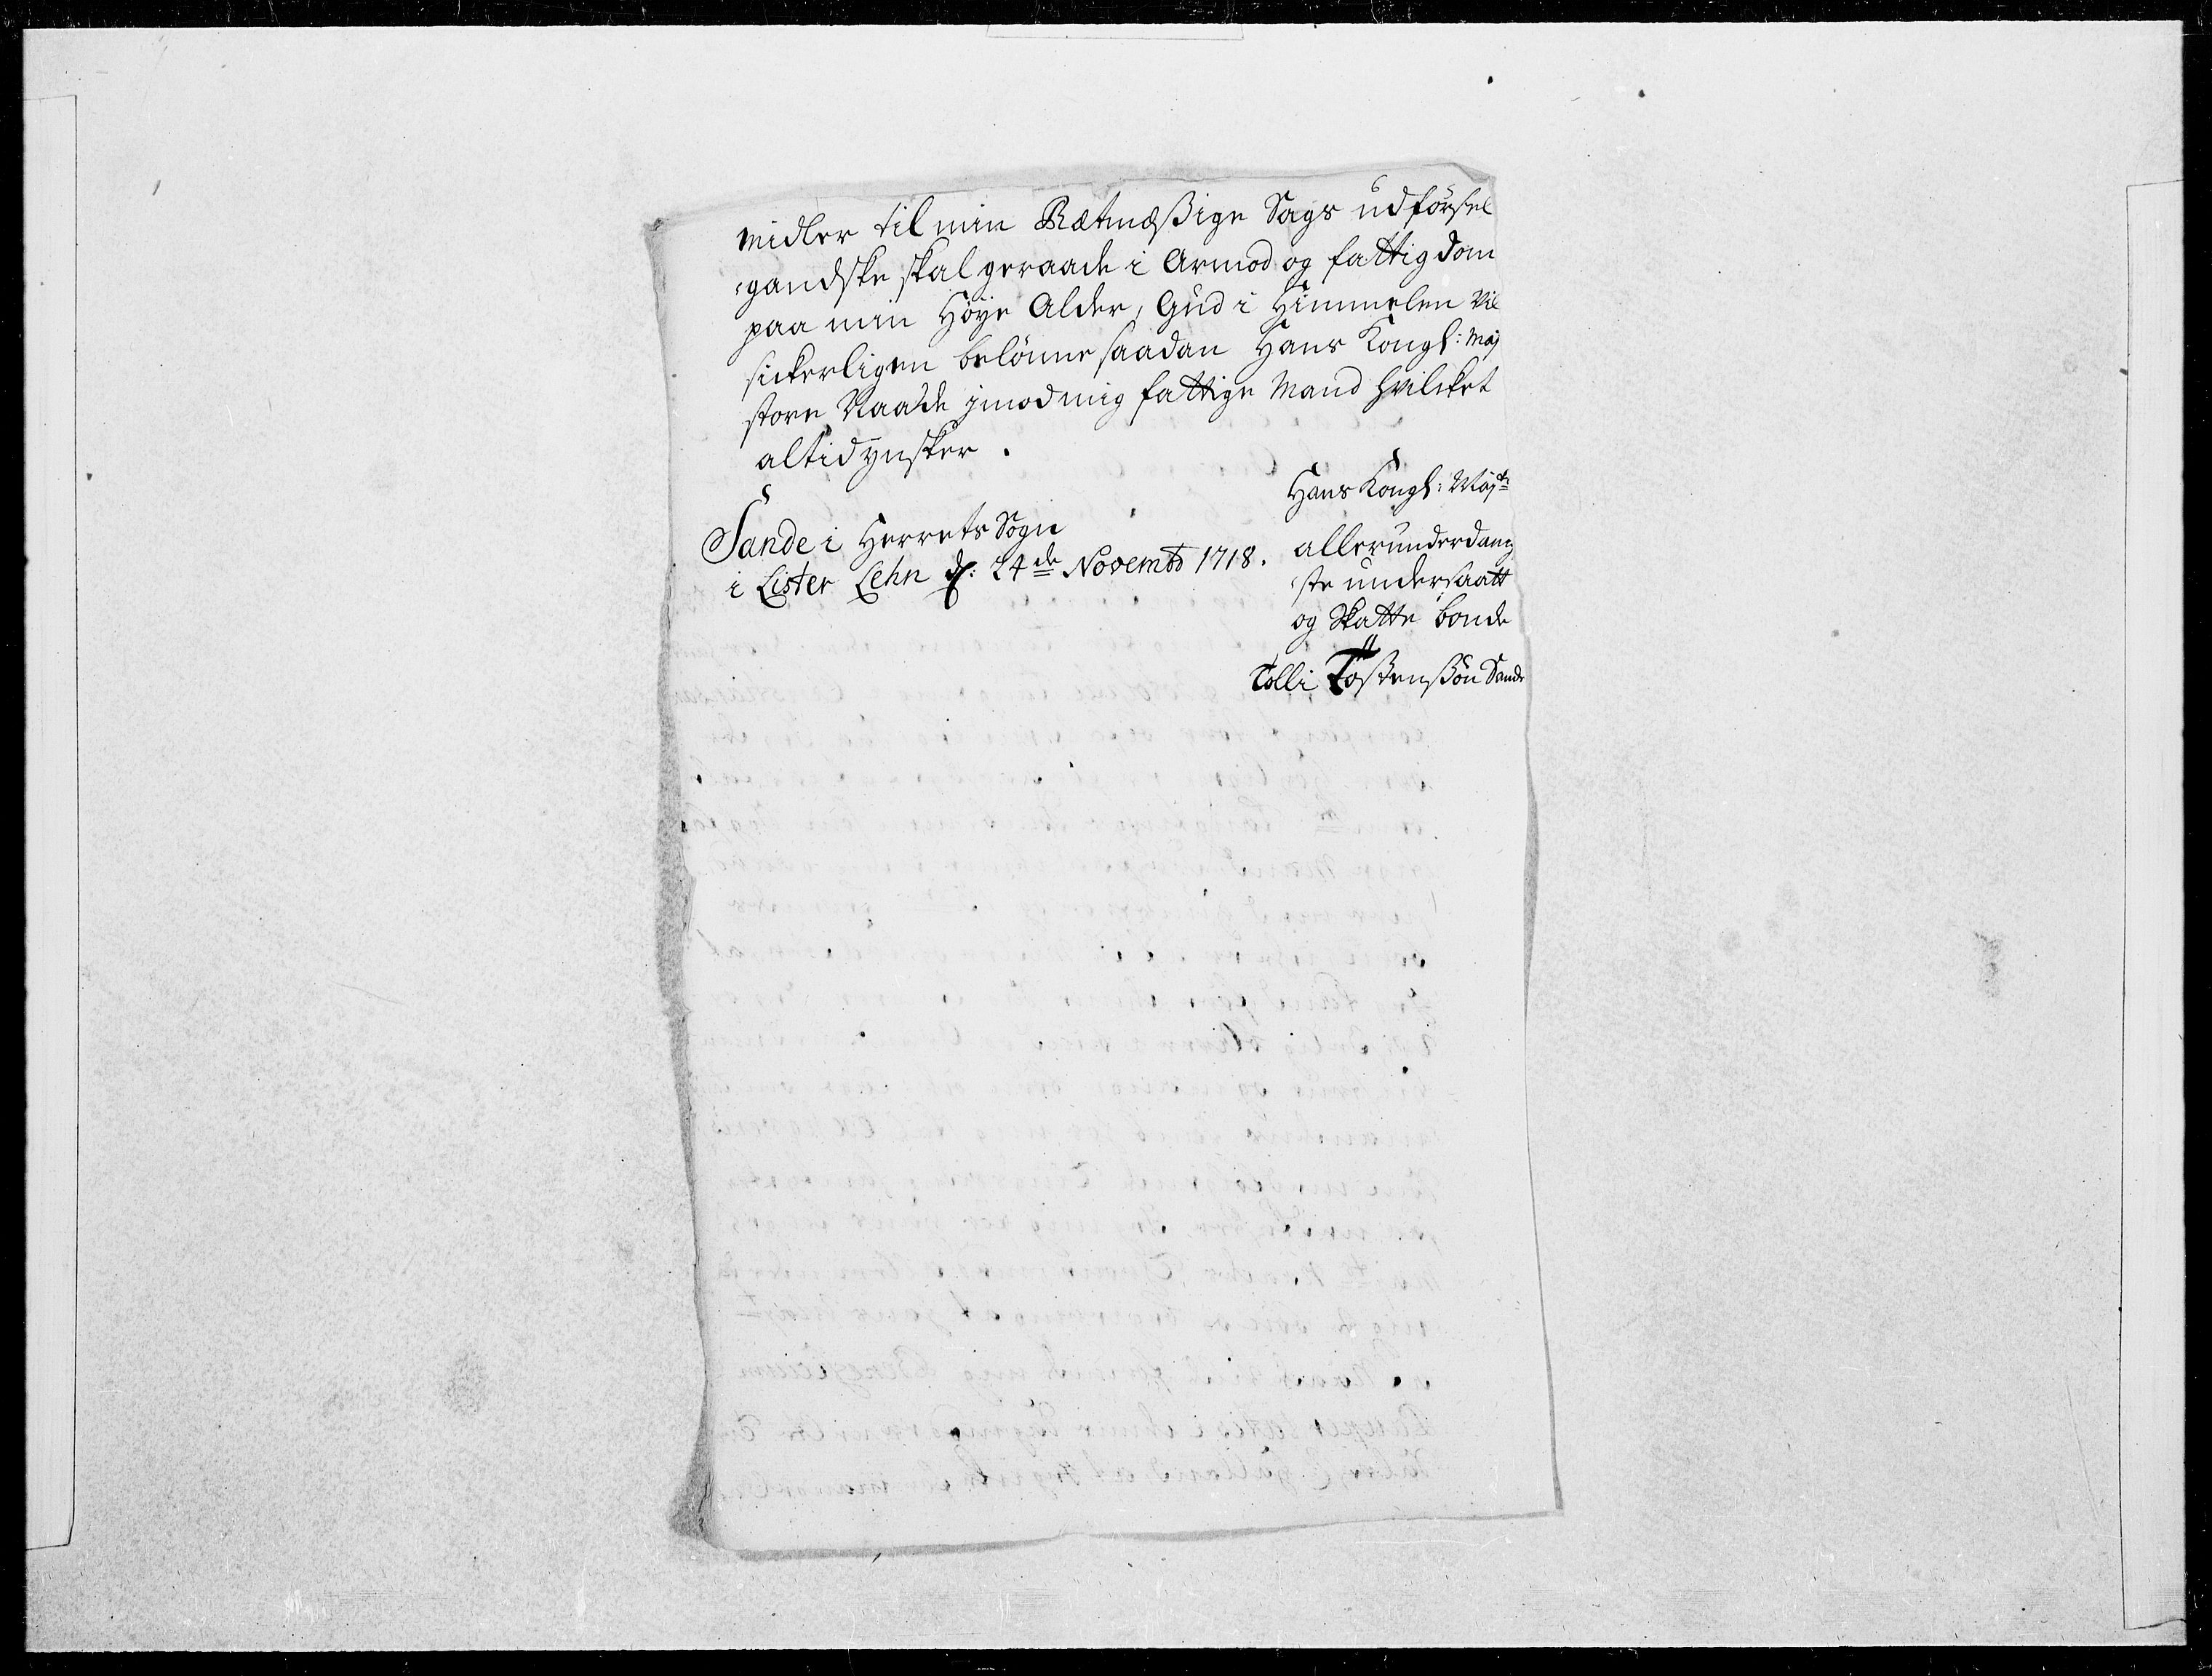 midler til min Rætmæßige Sags udførsel
gandske skal geraade i Armod og fattigdom
paa min Høye Alder, Gud i Himmelen vil
sickerligen belønne saadan Hans Kongl: Maj
store Naade jmod mig fattige Mand hvilcket
altid ynsker.
Hans Kongl: Majts
Sande i Herrets Sogn
i Lister Lehn d: 24de Novembr 1718.
allerunderdanig
ste undersaatt
og Skatte bonde
Tolli Tostenßøn Sande